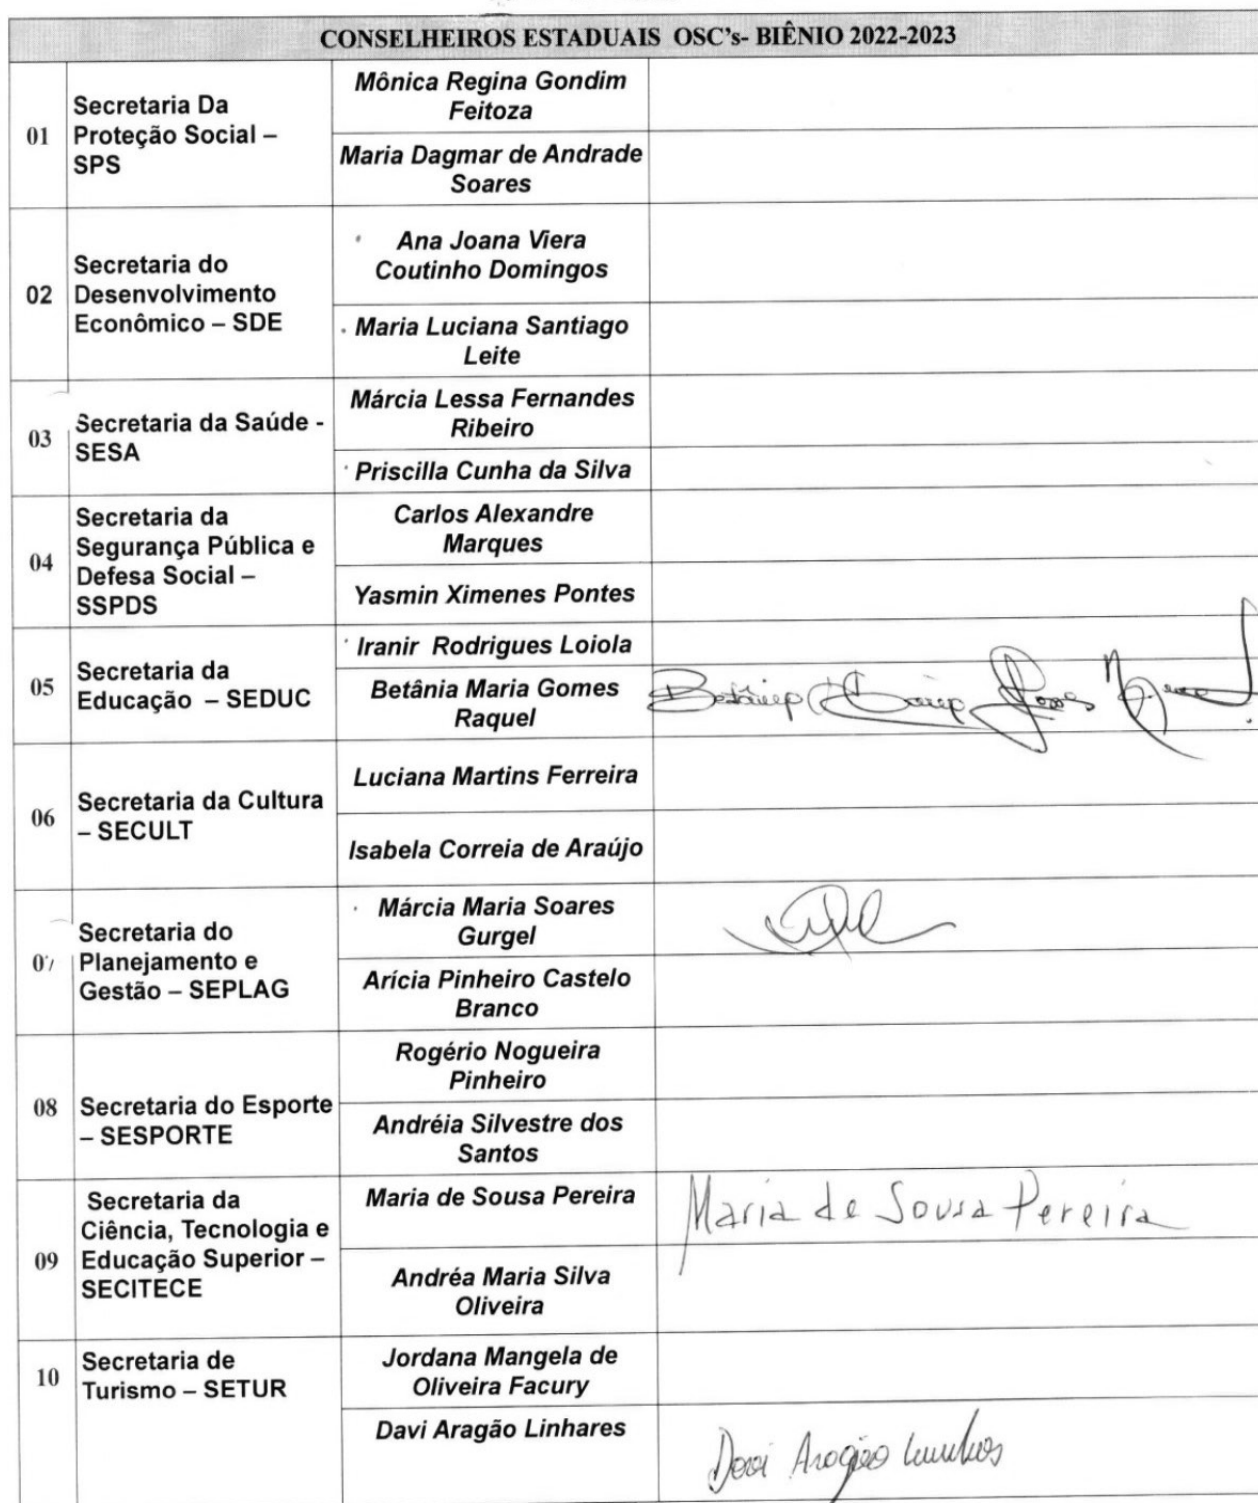 CONSELHEIROS ESTADUAIS OSC's- BIÊNIO 2022-2023
01
Secretaria Da
Proteção Social –
SPS
Mônica Regina Gondim
Feitoza
Maria Dagmar de Andrade
Soares
02
Secretaria do
Desenvolvimento
Econômico – SDE
Ana Joana Viera
Coutinho Domingos
Maria Luciana Santiago
Leite
03
Secretaria da Saúde -
SESA
Márcia Lessa Fernandes
Ribeiro
Priscilla Cunha da Silva
04
Secretaria da
Segurança Pública e
Defesa Social –
SSPDS
Carlos Alexandre
Marques
Yasmin Ximenes Pontes
05
Secretaria da
Educação – SEDUC
Iranir Rodrigues Loiola
Betânia Maria Gomes
Raquel
06
Secretaria da Cultura
– SECULT
Luciana Martins Ferreira
Isabela Correia de Araújo
07
Secretaria do
Planejamento e
Gestão – SEPLAG
Márcia Maria Soares
Gurgel
Arícia Pinheiro Castelo
Branco
08
Secretaria do Esporte
– SESPORTE
Rogério Nogueira
Pinheiro
Andréia Silvestre dos
Santos
09
Secretaria da
Ciência, Tecnologia e
Educação Superior –
SECITECE
Maria de Sousa Pereira
Maria de Sousa Pereira
Andréa Maria Silva
Oliveira
10
Secretaria de
Turismo – SETUR
Jordana Mangela de
Oliveira Facury
Davi Aragão Linhares
Davi Aragão Linhares